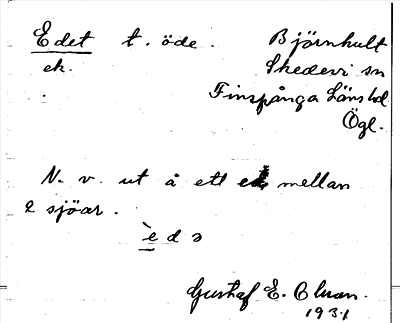 Edet t. öde. Björnhult
ek. Skedevi sn
Finspånga Länshd
Ögl.
N. v. ut å ett ed mellan
2 sjöar.
èdə
Gustaf E. Olson.
1931